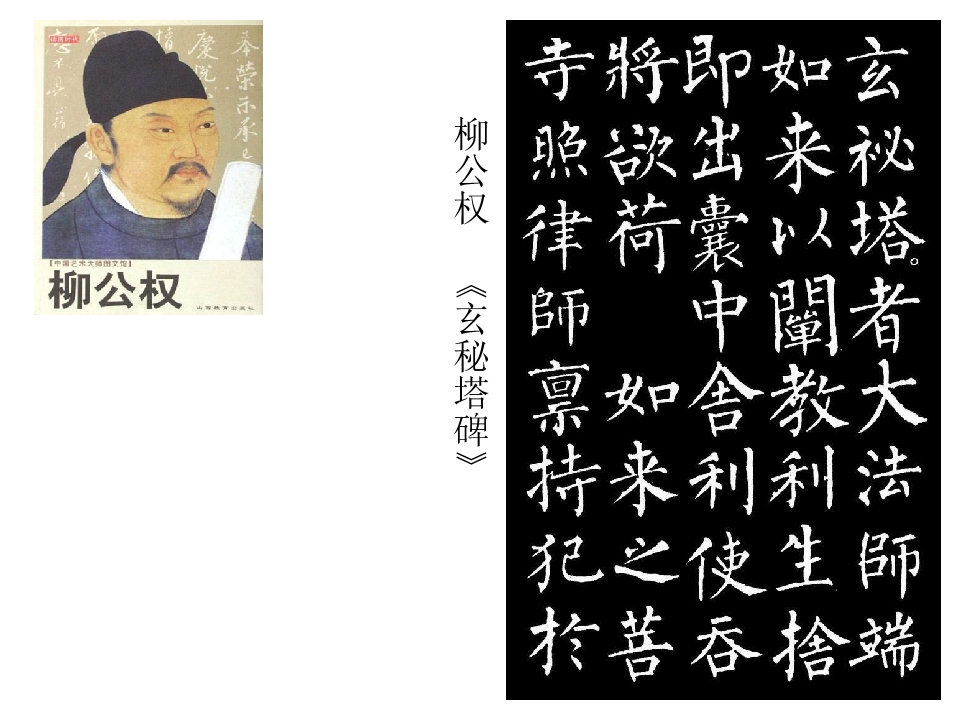 【中国艺术大师图文馆】
柳公权
柳公权 《玄秘塔碑》
玄祕塔。者大法師端
如来以闡教利生捨
即出囊中舍利使吞
將欲荷 如来之菩
寺照律師禀持犯於